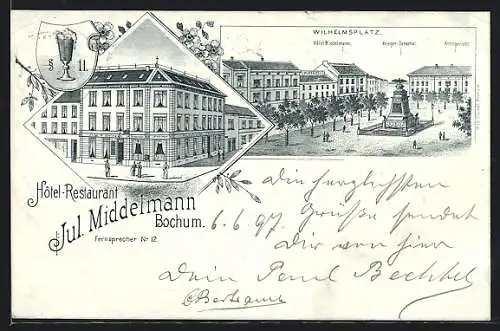 WILHELMSPLATZ.
Hôtel Middelmann.
Krieger-Denkmal.
Amtsgericht.
§ 11.
Hôtel-Restaurant
Jul. Middelmann
Bochum.
Fernsprecher No 12.
6.6.97
Die herzlichsten
Grüße sendet
Dir von hier
Dein Paul Bechtel